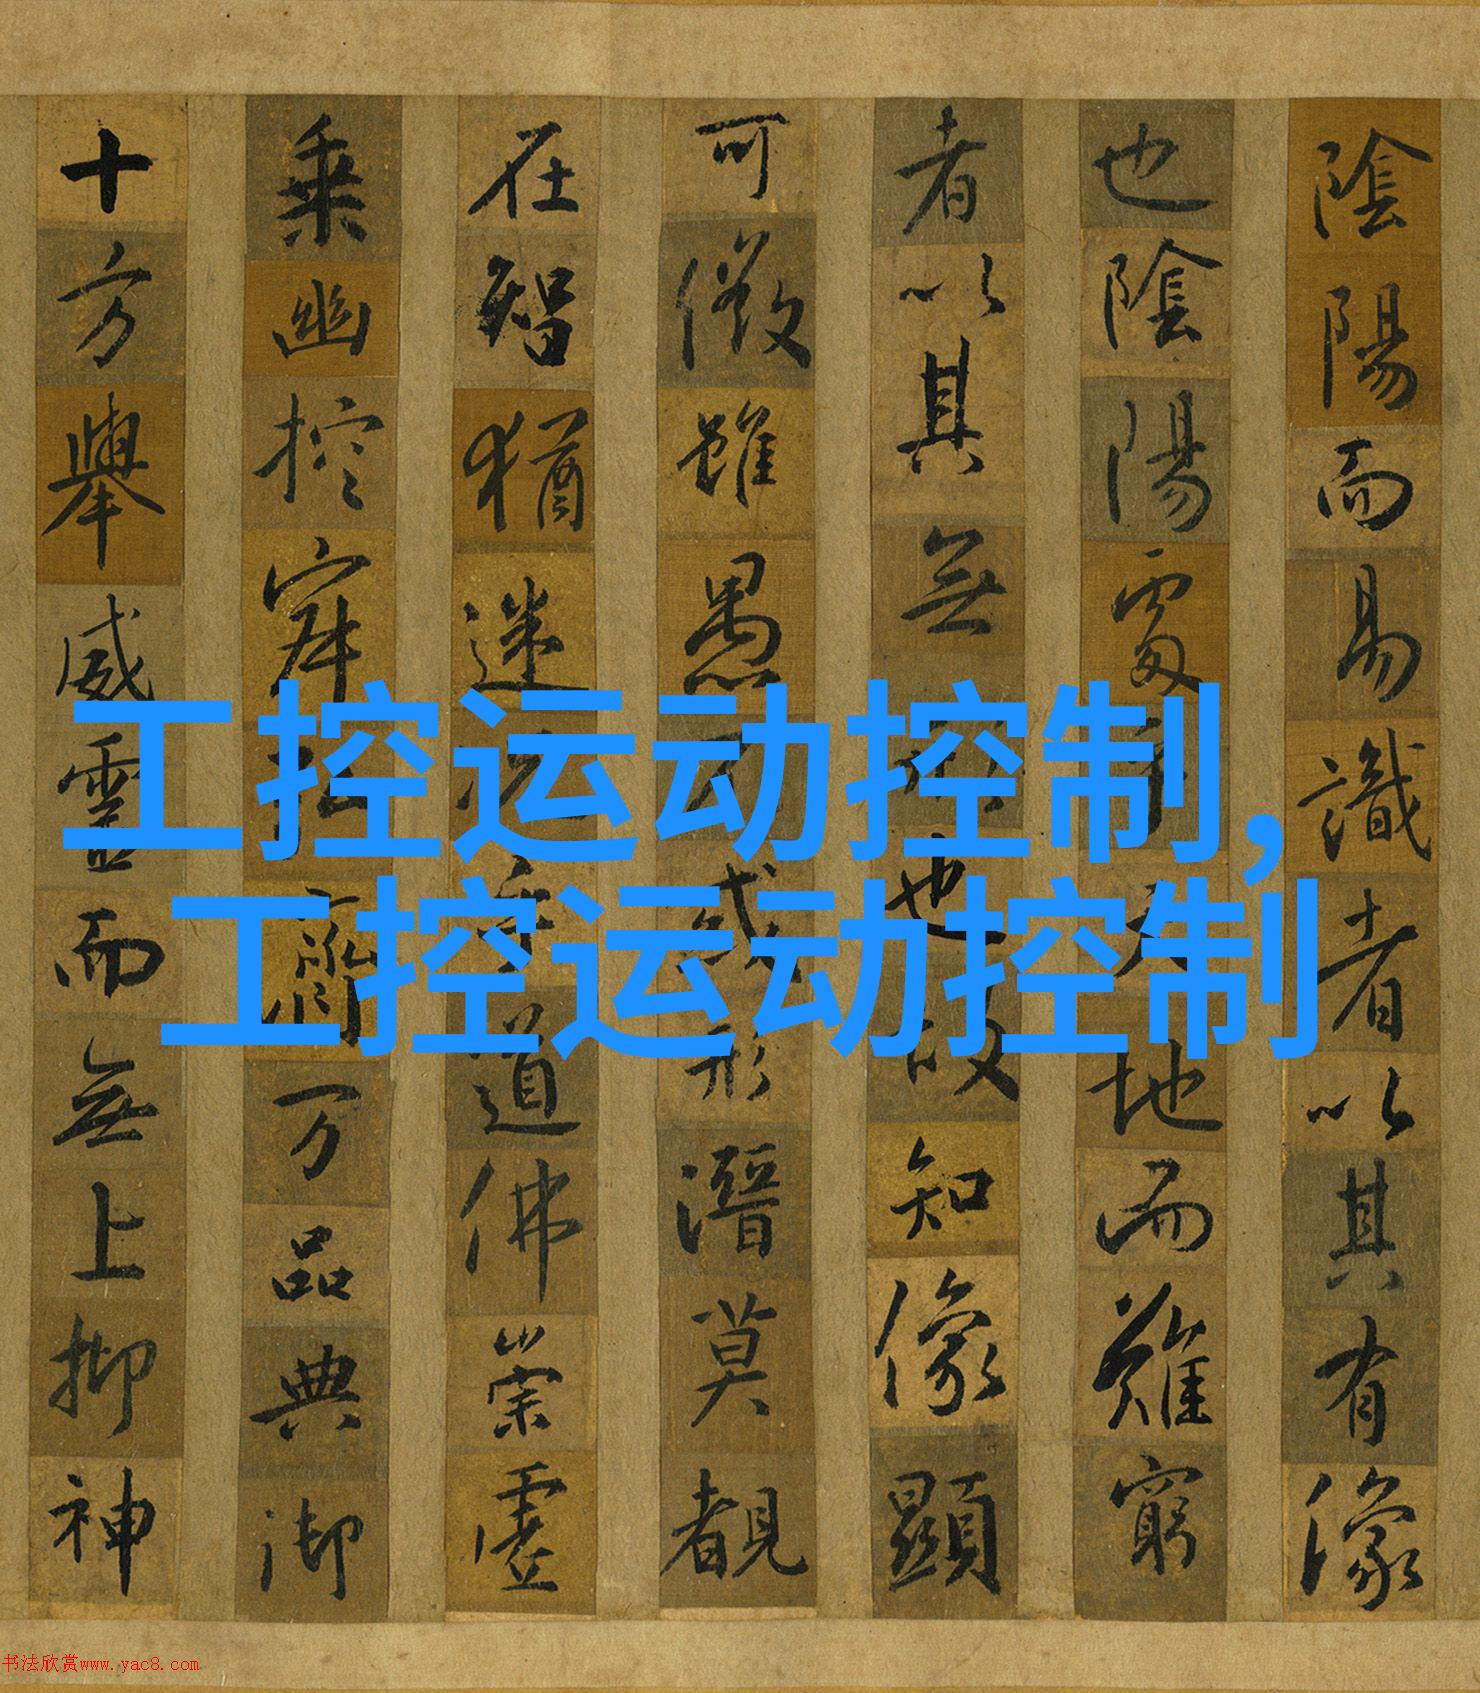 陰陽而易識者以其有像
也陰陽處乎天地而難窮
者以其無形也故知像顯
可徵雖愚不惑形潛莫覩
在智猶迷況乎道佛崇虛
乘幽控寂弘濟万品典御
十方舉威靈而無上抑神
工控运动控制,
工控运动控制
书法欣赏www.yac8.com